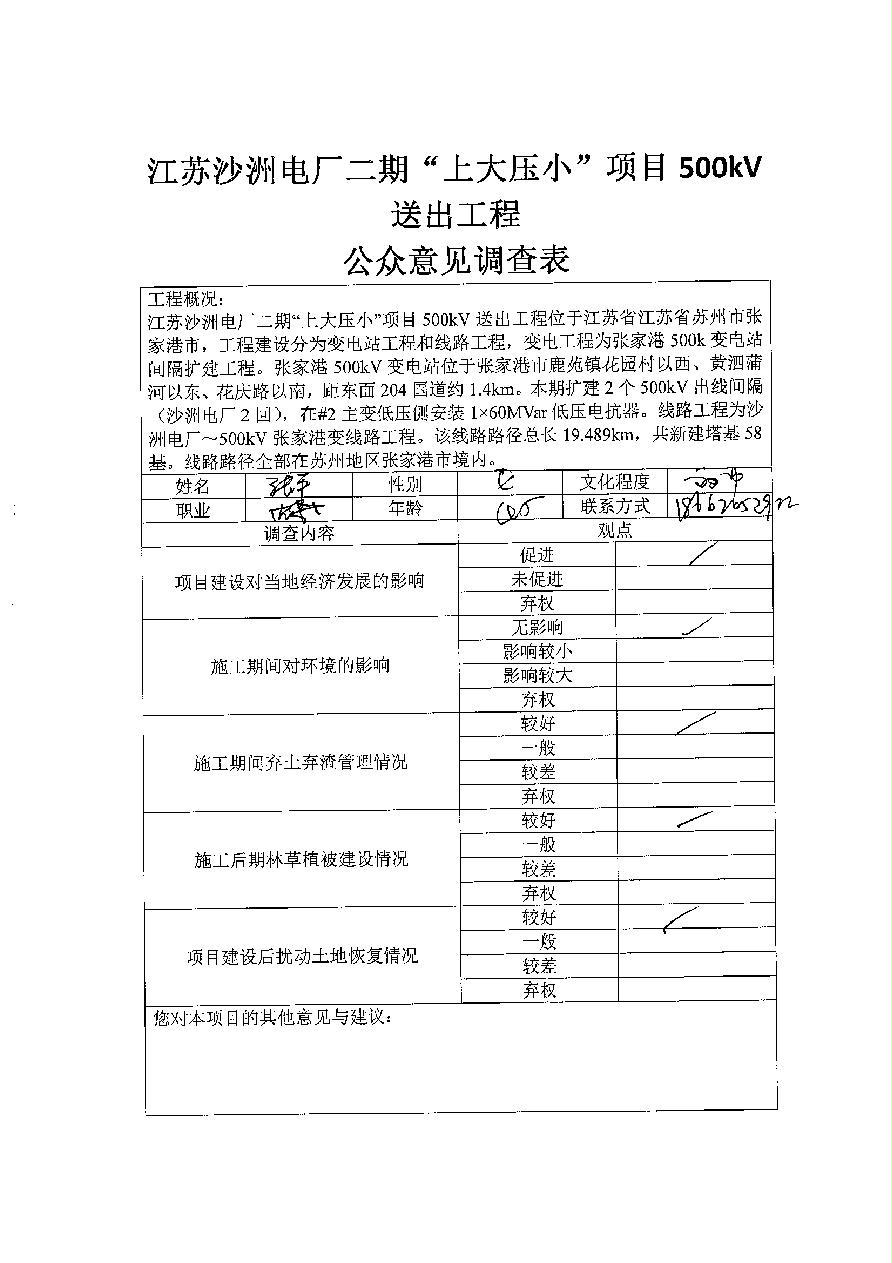 江苏沙洲电厂二期“上大压小”项目 500kV
送出工程
公众意见调查表
工程概况：
江苏沙洲电厂二期“上大压小”项目 500kV 送出工程位于江苏省江苏省苏州市张
家港市，工程建设分为变电站工程和线路工程，变电工程为张家港 500k 变电站
间隔扩建工程。张家港 500kV 变电站位于张家港市鹿苑镇花园村以西、黄泗蒲
河以东、花庆路以南，距东面 204 国道约 1.4km。本期扩建 2 个 500kV 出线间隔
（沙洲电厂 2 回），在#2 主变低压侧安装 1×60MVar 低压电抗器。线路工程为沙
洲电厂～500kV 张家港变线路工程。该线路路径总长 19.489km，共新建塔基 58
基。线路路径全部在苏州地区张家港市境内。
姓名 张平 性别 文化程度 高中
职业 年龄 联系方式
调查内容 观点
项目建设对当地经济发展的影响
促进
未促进
弃权
施工期间对环境的影响
无影响
影响较小
影响较大
弃权
施工期间弃土弃渣管理情况
较好
一般
较差
弃权
施工后期林草植被建设情况
较好
一般
较差
弃权
项目建设后扰动土地恢复情况
较好
一般
较差
弃权
您对本项目的其他意见与建议：